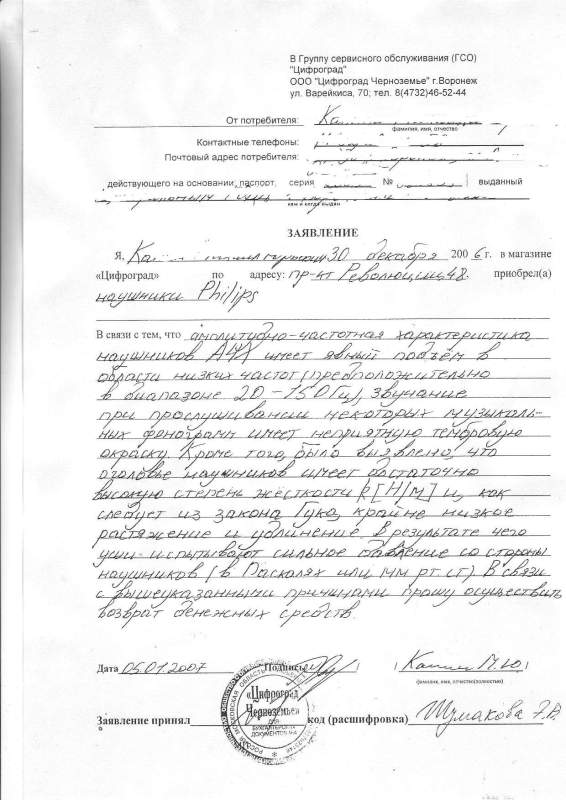 В Группу сервисного обслуживания (ГСО)
"Цифроград"
ООО "Цифроград Черноземье" г.Воронеж
ул. Варейкиса, 70; тел. 8(4732)46-52-44
От потребителя:
фамилия, имя, отчество
Контактные телефоны:
Почтовый адрес потребителя:
действующего на основании: паспорт, серия № выданный
кем и когда выдан
ЗАЯВЛЕНИЕ
Я, 30 декабря 2006 г. в магазине
«Цифроград» по адресу: пр-кт Революции, 48, приобрел(а)
наушники Philips
В связи с тем, что амплитудно-частотная характеристика
наушников АЧХ имеет явный подъём в
области низких частот (предположительно
в диапазоне 20-150 Гц), звучание
при прослушивании некоторых музыкаль-
ных фонограмм имеет неприятную тембровую
окраску. Кроме того, было выявлено, что
оголовье наушников имеет достаточно
высокую степень жёсткости k[Н/м] и, как
следует из закона Гука, крайне низкое
растяжение и удлинение в результате чего
уши испытывают сильное давление со стороны
наушников (в Паскалях или мм рт. ст.). В связи
с вышеуказанными причинами прошу осуществить
возврат денежных средств.
Дата 05.01.2007 Подпись М.Ю.
фамилия, имя, отчество(полностью)
«Цифроград
Черноземье»
ДЛЯ
БУХГАЛТЕРСКИХ
ДОКУМЕНТОВ
Заявление принял код (расшифровка) Шумакова